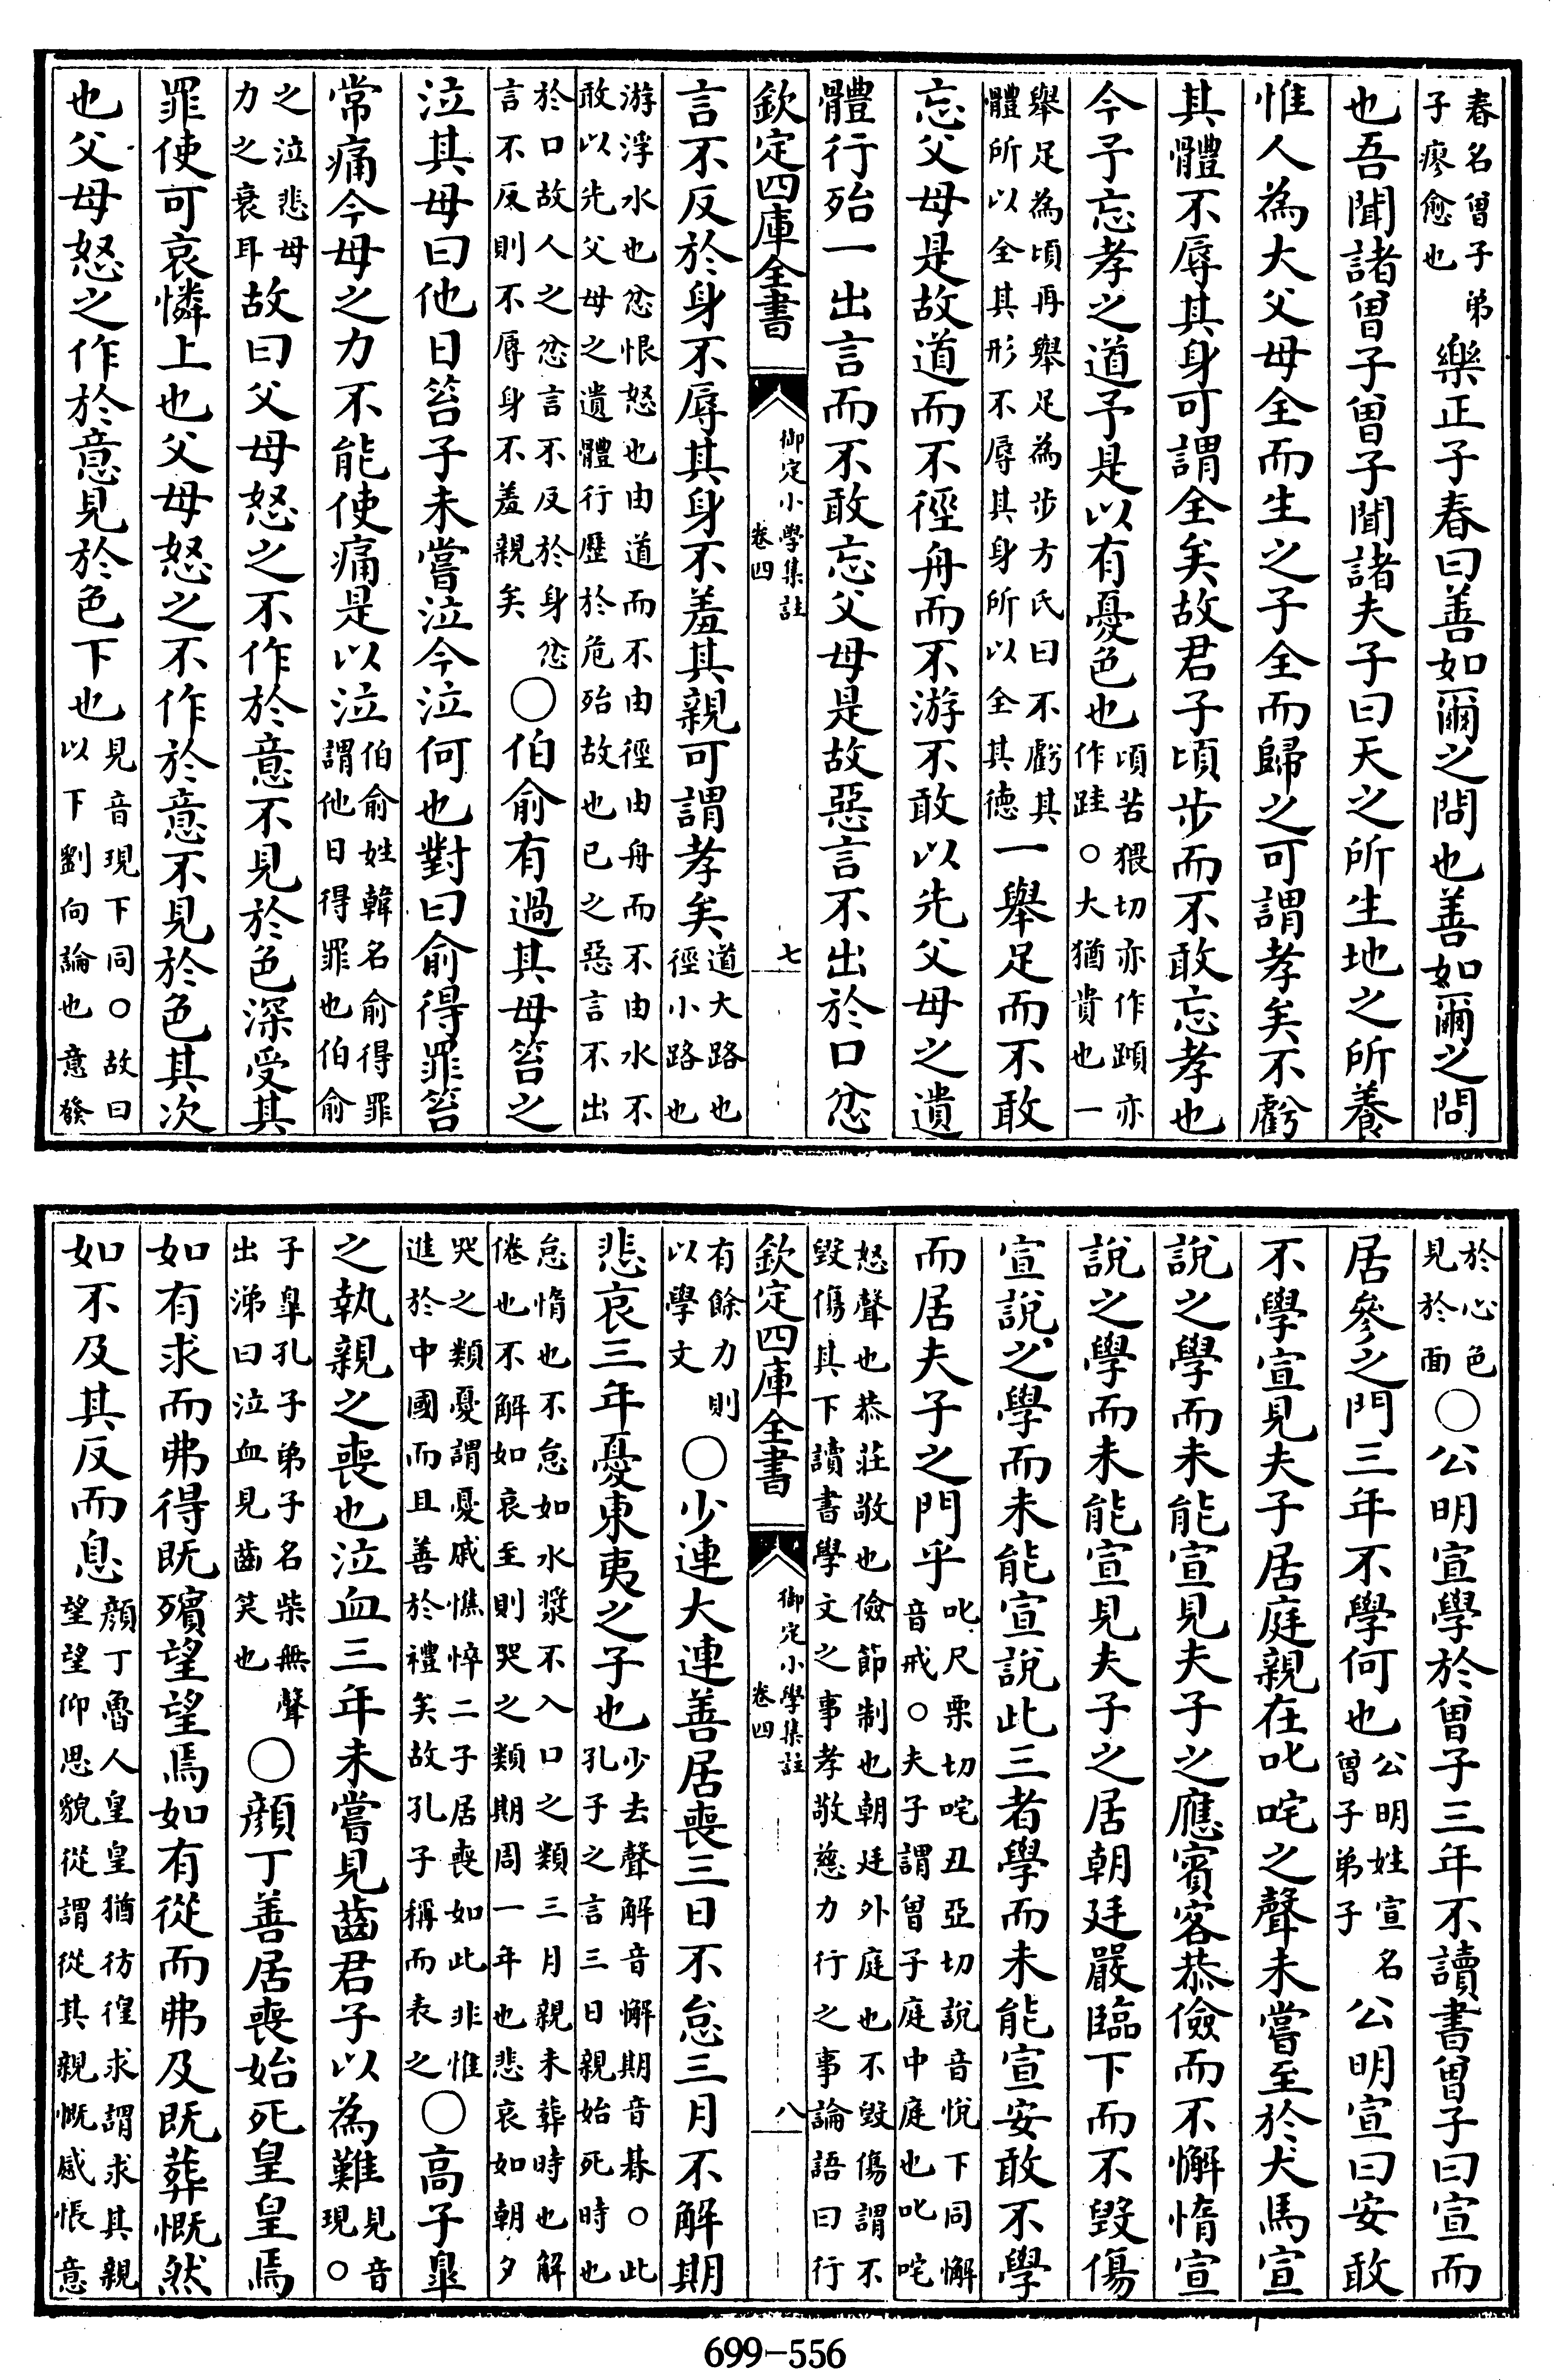 春名曾子弟子瘳愈也樂正子春曰善如爾之問也善如爾之問
也吾聞諸曾子曾子聞諸夫子曰天之所生地之所養
惟人為大父母全而生之子全而歸之可謂孝矣不虧
其體不辱其身可謂全矣故君子頃步而不敢忘孝也
今予忘孝之道予是以有憂色也頃苦猥切亦作蹞亦作跬○大猶貴也一
舉足為頃再舉足為步方氏曰不虧其體所以全其形不辱其身所以全其德一舉足而不敢
忘父母是故道而不徑舟而不游不敢以先父母之遺
體行殆一出言而不敢忘父母是故惡言不出於口忿
欽定四庫全書
御定小學集註
卷四
七
言不反於身不辱其身不羞其親可謂孝矣道大路也徑小路也
游浮水也忿恨怒也由道而不由徑由舟而不由水不敢以先父母之遺體行歷於危殆故也已之惡言不出
於口故人之忿言不反於身忿言不反則不辱身不羞親矣○伯俞有過其母笞之
泣其母曰他日笞子未嘗泣今泣何也對曰俞得罪笞
常痛今母之力不能使痛是以泣伯俞姓韓名俞得罪謂他日得罪也伯俞
之泣悲母力之衰耳故曰父母怒之不作於意不見於色深受其
罪使可哀憐上也父母怒之不作於意不見於色其次
也父母怒之作於意見於色下也見音現下同○故曰以下劉向論也意發
於心色見於面○公明宣學於曾子三年不讀書曾子曰宣而
居參之門三年不學何也公明姓宣名曾子弟子公明宣曰安敢
不學宣見夫子居庭親在叱咤之聲未嘗至於犬馬宣
說之學而未能宣見夫子之應賓客恭儉而不懈惰宣
說之學而未能宣見夫子之居朝廷嚴臨下而不毀傷
宣說之學而未能宣說此三者學而未能宣安敢不學
而居夫子之門乎叱尺栗切咤丑亞切說音悅下同懈音戒○夫子謂曾子庭中庭也叱咤
怒聲也恭莊敬也儉節制也朝廷外庭也不毀傷謂不毀傷其下讀書學文之事孝敬慈力行之事論語曰行
欽定四庫全書
御定小學集註
卷四
八
有餘力則以學文○少連大連善居喪三日不怠三月不解期
悲哀三年憂東夷之子也少去聲解音懈期音朞○此孔子之言三日親始死時也
怠惰也不怠如水漿不入口之類三月親未葬時也解倦也不解如哀至則哭之類期周一年也悲哀如朝夕
哭之類憂謂憂戚憔悴二子居喪如此非惟進於中國而且善於禮矣故孔子稱而表之○高子臯
之執親之喪也泣血三年未嘗見齒君子以為難見音現○
子臯孔子弟子名柴無聲出涕曰泣血見齒笑也○顏丁善居喪始死皇皇焉
如有求而弗得既殯望望焉如有從而弗及既葬慨然
如不及其反而息顏丁魯人皇皇猶彷徨求謂求其親望望仰思貌從謂從其親慨感悵意
699-556